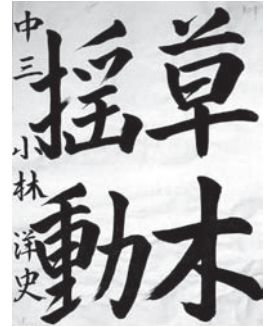 草木
揺動
中三 小林 洋史